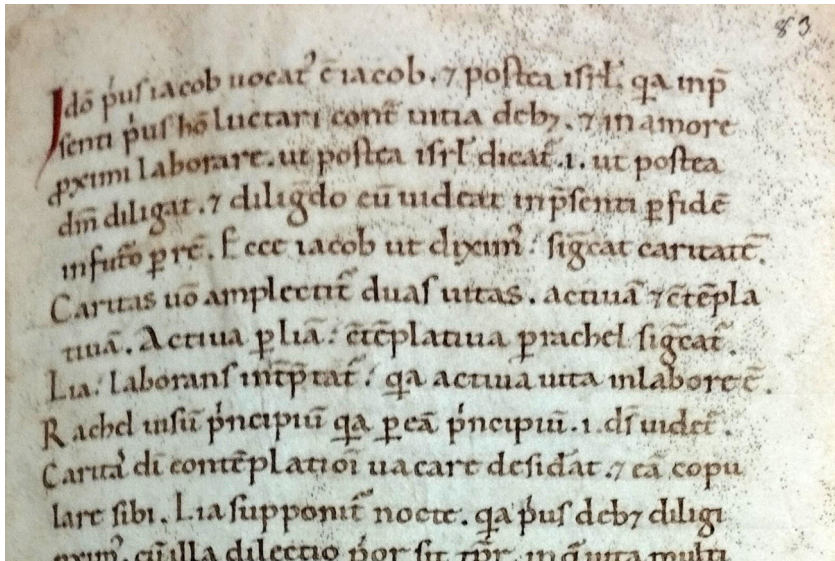 83
Idō p̍us iacob uocat᷒ ē iacob. ⁊ postea isrł. qa inp̄
senti p̍us hō luctari cont̄ uitia deb&, ⁊ in amore
ꝓximi laborare. ut postea isrł dicat̄ .i. ut postea
dm̄ diligat. ⁊ diligēdo eū uideat inp̄senti ꝑ fidē
in fut̄o ꝑ rē. Ecce iacob ut dixim᷒: sig̅cat caritatē.
Caritas uō amplectit̄ duas uitas. actiuā ⁊ c̄tēpla
tiuā. Actiua ꝑ liā: c̄tēplatiua ꝑ rachel sig̅cat̄.
Lia: laborans int̄p̄tat̄: qa actiua uita in labore ē.
Rachel uisū p̍ncipiū qa ꝑ eā p̍ncipiū .i. ds̄ uidet̄.
Carita᷒ dī contēplatiōi uacare desid̄at. ⁊ eā copu
lare sibi. Lia supponit̄ nocte. qa p̍us deb& diligi
ꝓxim᷒. cū illa dilectio p̍or sit tp̄r. in q̄ uita multi